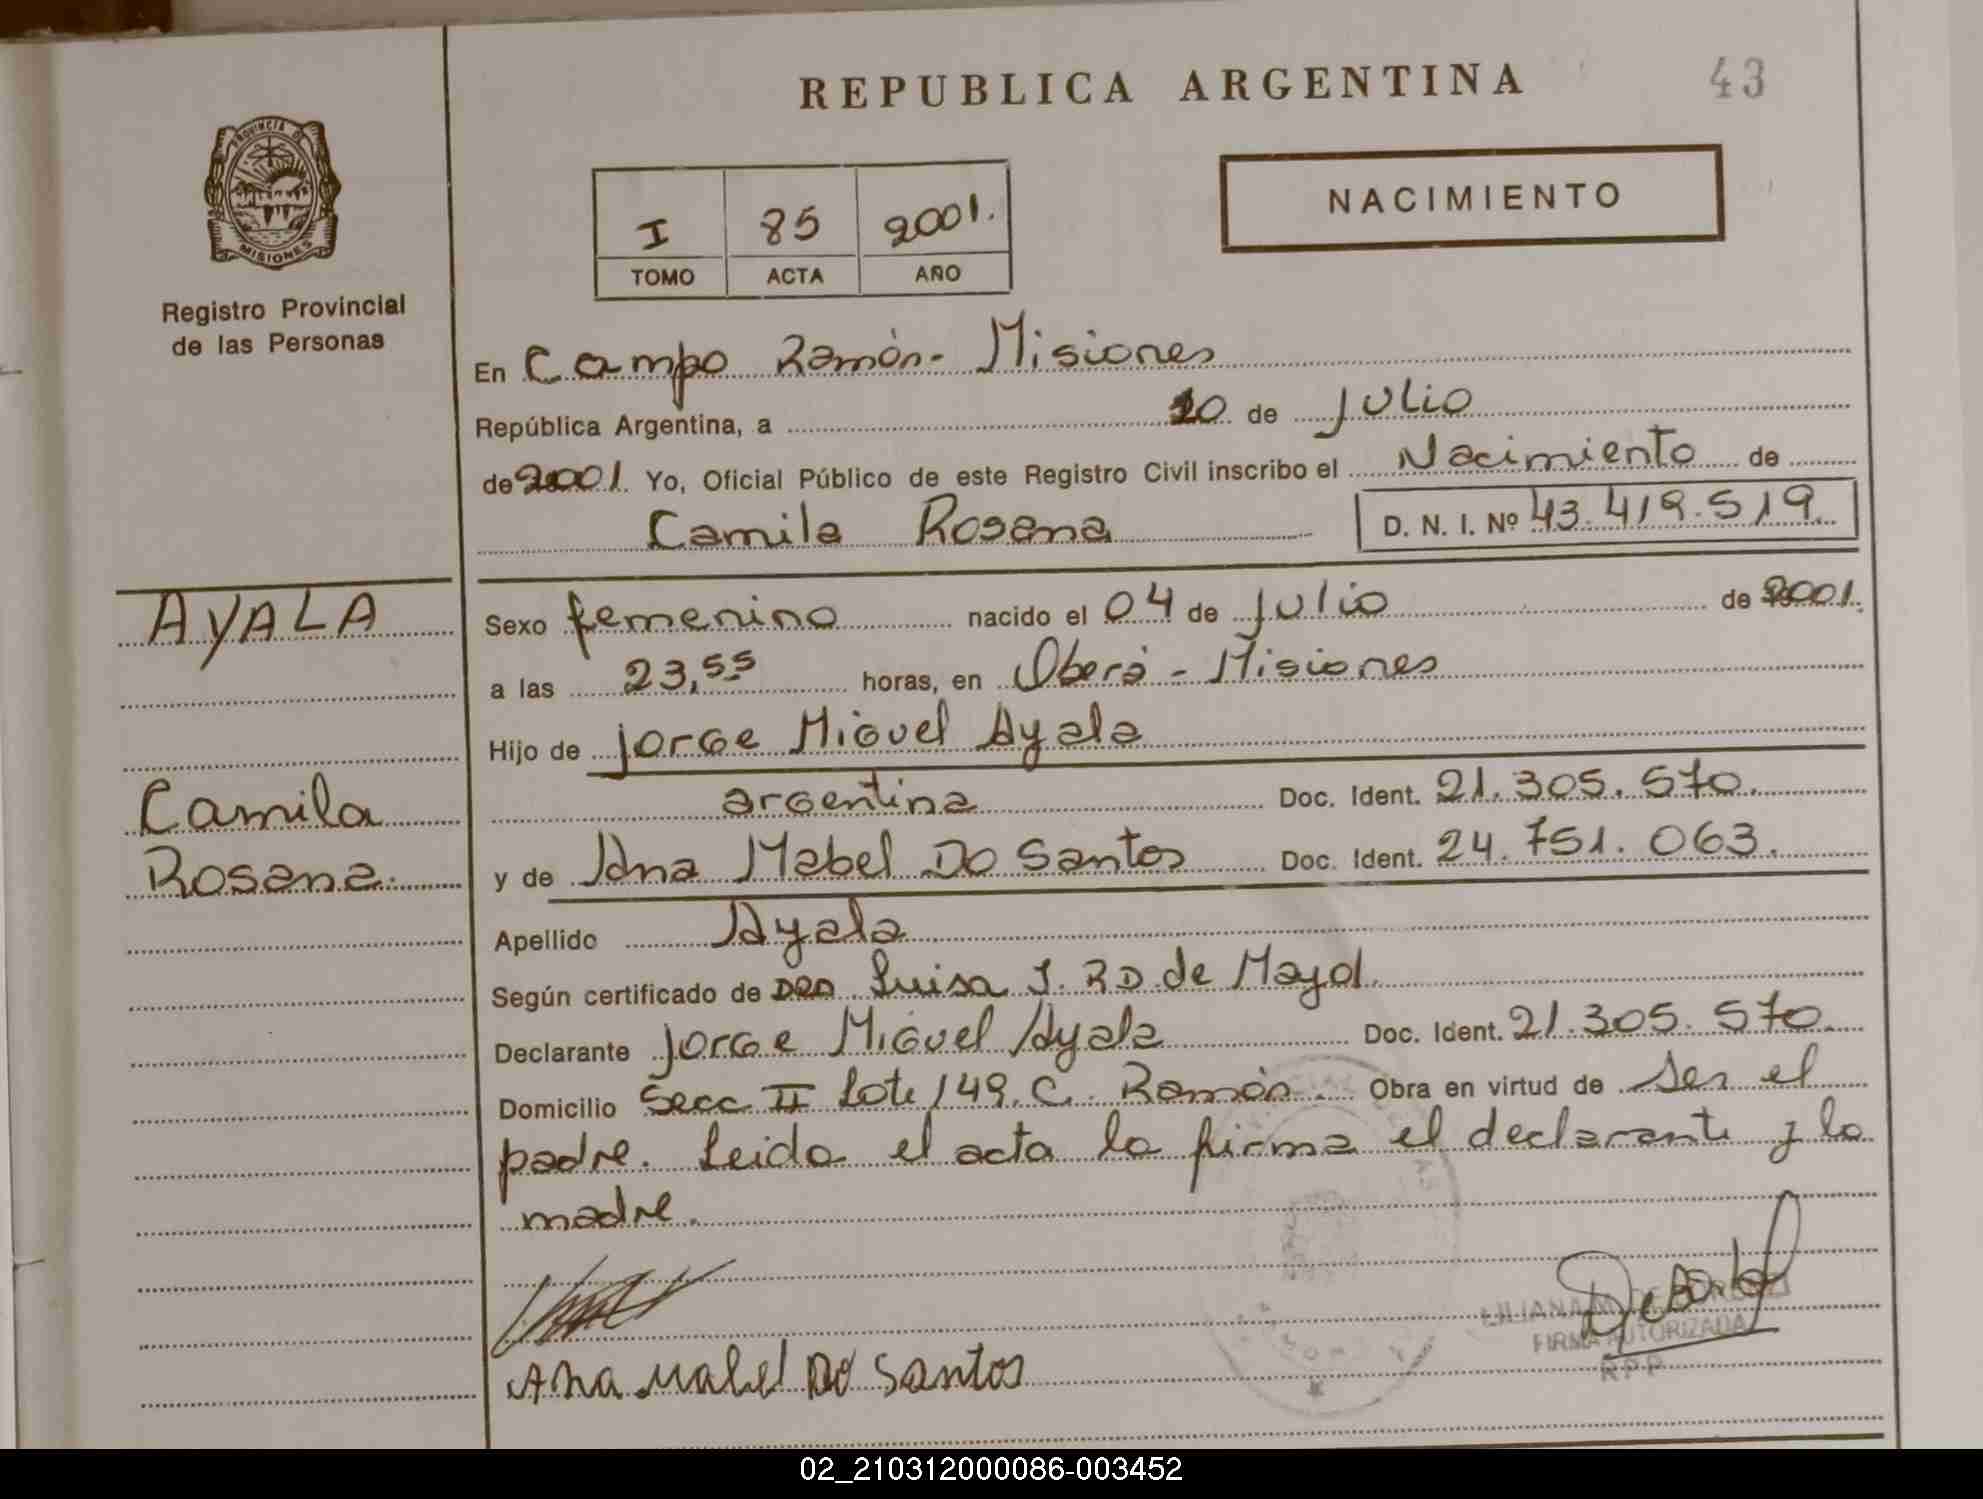 REPUBLICA ARGENTINA
43
PROVINCIA DE
MISIONES
Registro Provincial
de las Personas
I 85 2001.
TOMO ACTA AÑO
NACIMIENTO
En Campo Ramón - Misiones
República Argentina, a 10 de Julio
de 2001. Yo, Oficial Público de este Registro Civil inscribo el Nacimiento de
Camila Rosana D. N. I. Nº 43.419.519.
AYALA
Camila
Rosana.
Sexo femenino nacido el 04 de Julio de 2001.
a las 23,55 horas, en Oberá - Misiones
Hijo de Jorge Miguel Ayala
argentina Doc. Ident. 21.305.570.
y de Ana Mabel Do Santos Doc. Ident. 24.751.063.
Apellido Ayala
Según certificado de DRA Luisa J. RD de Mayol.
Declarante Jorge Miguel Ayala Doc. Ident. 21.305.570.
Domicilio Secc II Lote 149. C. Ramón. Obra en virtud de ser el
padre. Leida el acta la firma el declarante y la
madre.
Ana Mabel Do Santos
LILIANA
FIRMA AUTORIZADA
R P P
02_210312000086-003452